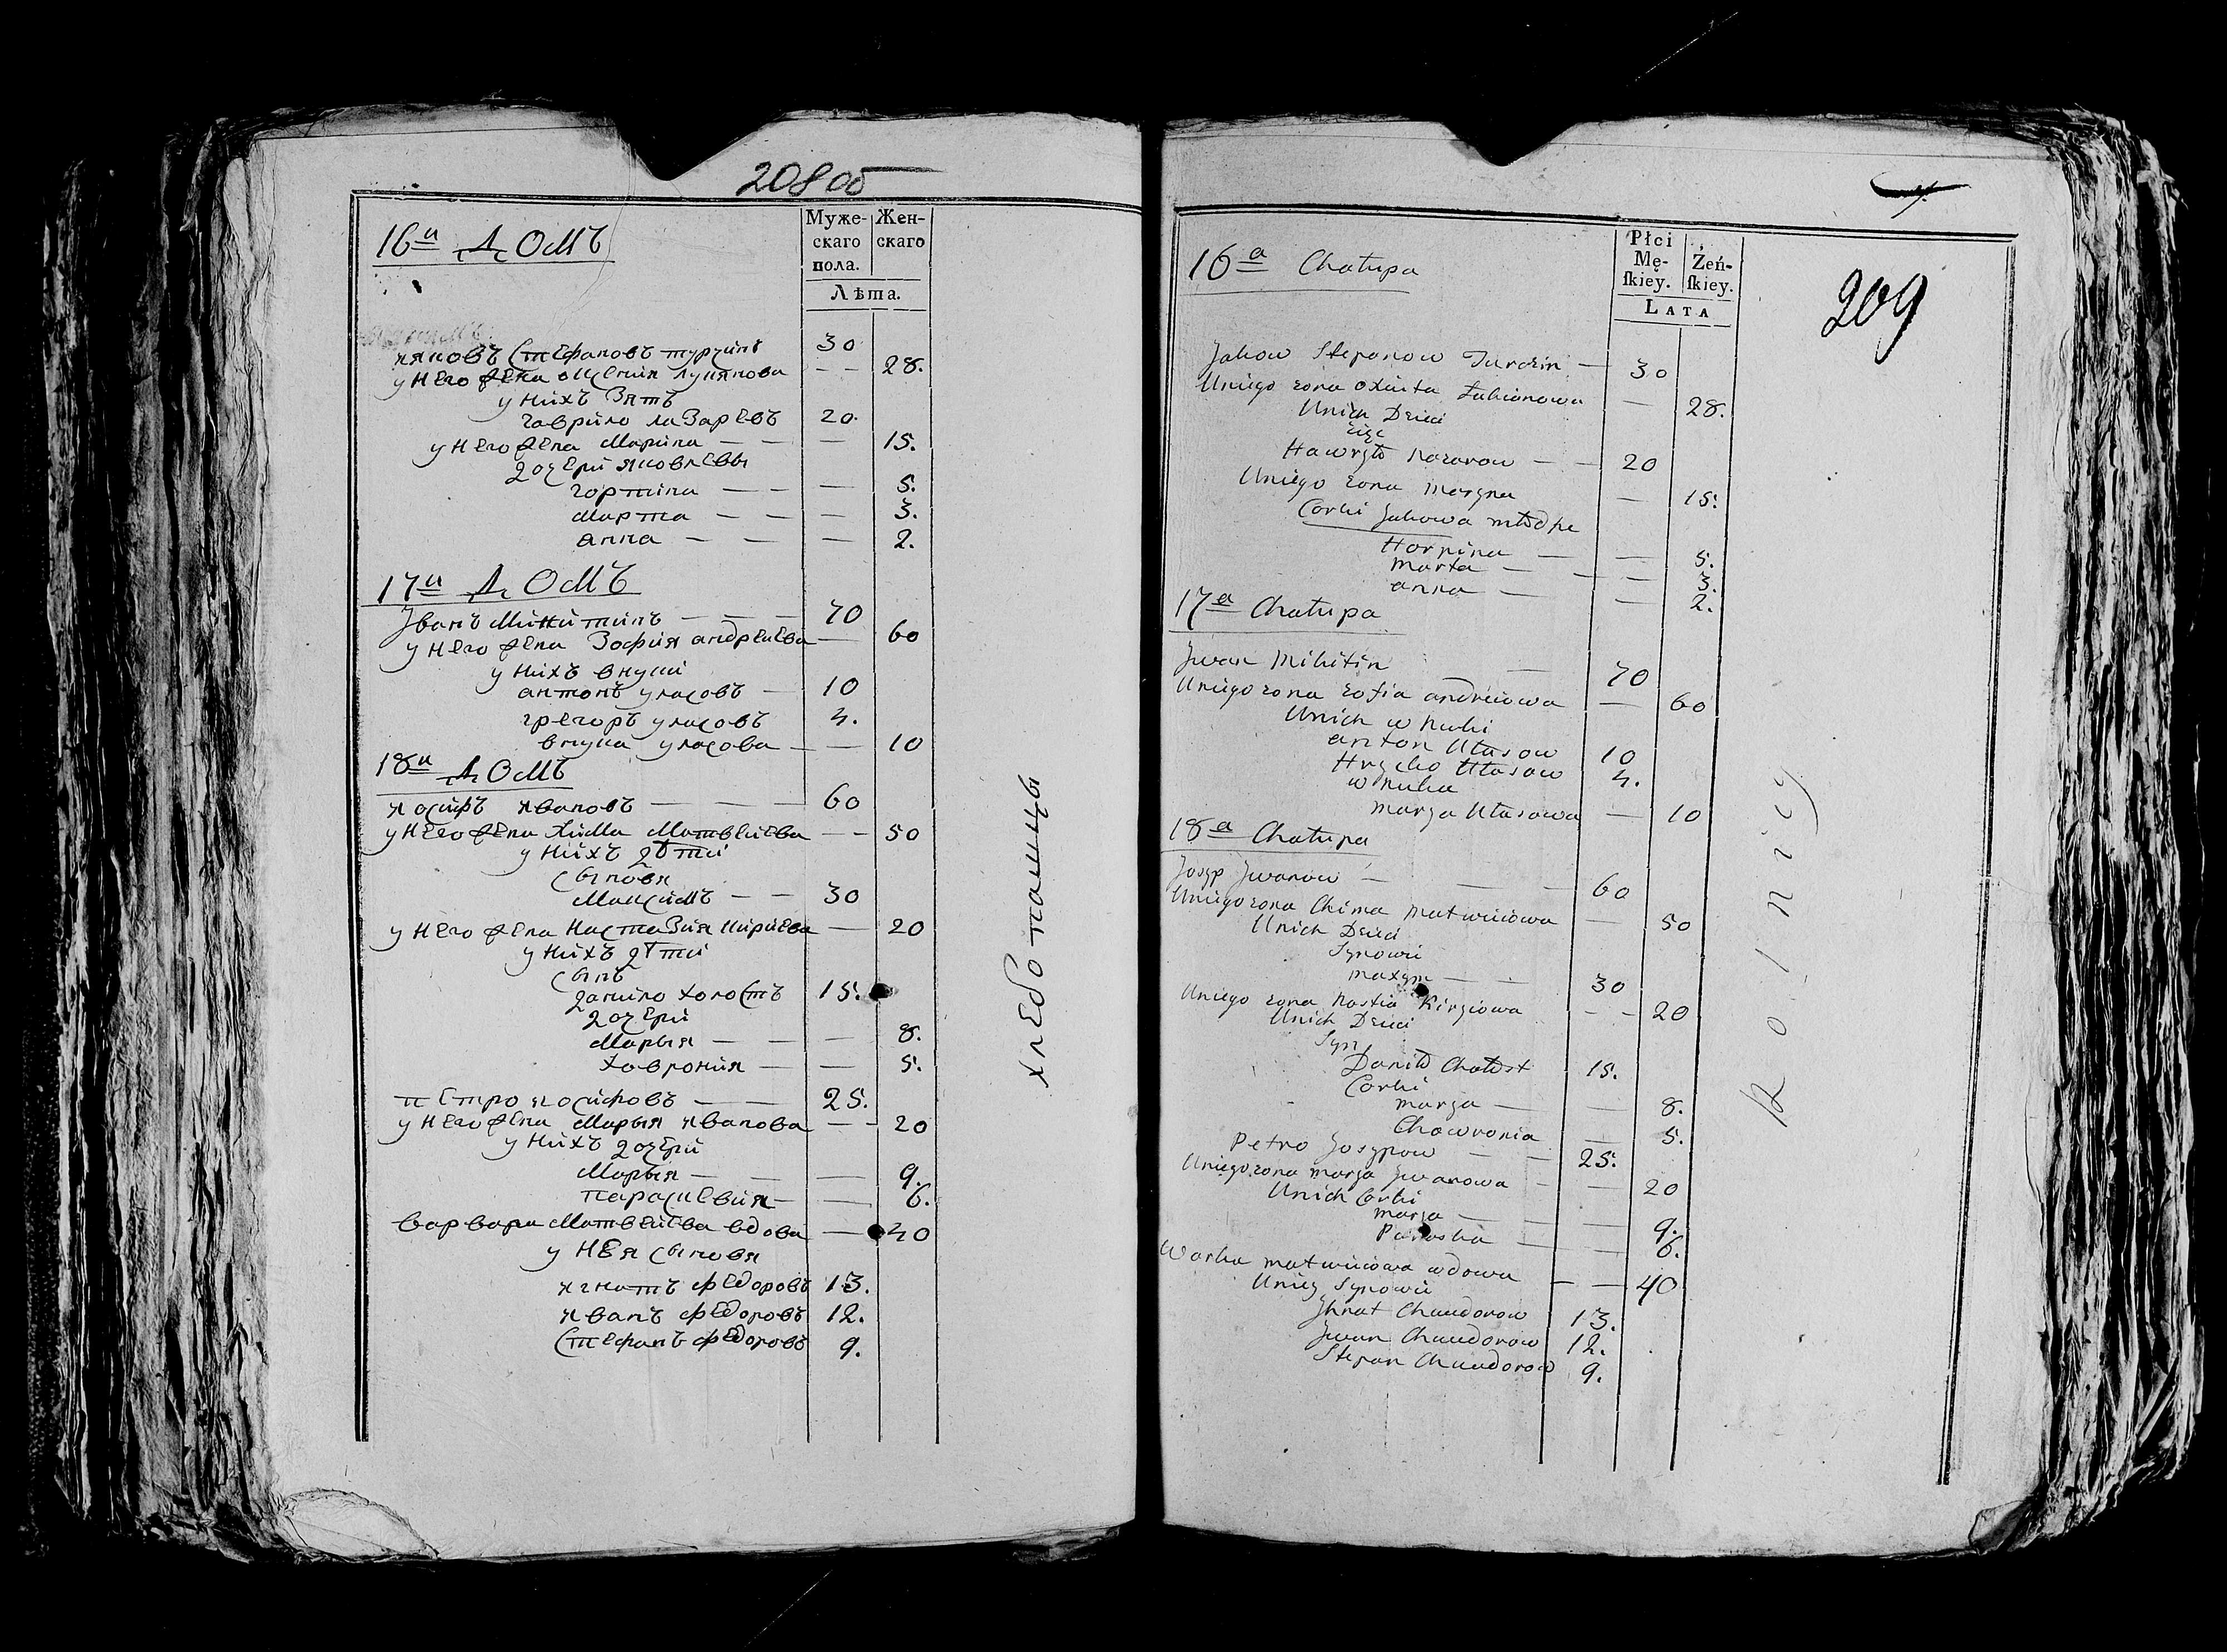 208 об
16й ДОМЪ
Муже-
скаго
пола.
Жен-
скаго
Лѣта.
ияковъ Стефановъ турчинъ 30
у него жена оксения лукянова — — 28.
у нихъ Зятъ
гаврило лаЗаревъ 20.
у него жена Марина — — — 15.
дочери яковлевы
горпина — — — 5.
Марта — — — 3.
анна — — — 2.
17й ДОМЪ
Іванъ Микитинъ — — — 70
у него жена Зофия андреиева — 60
у нихъ внуки
антонъ уласовъ — 10
грегоръ уласовъ 4.
внука уласова — — 10
18й ДОМЪ
иосифъ ивановъ — — — 60
у него жена Хима Матвеиева — — 50
у нихъ дѣти
сыновя
Максимъ — — 30
у него жена НастаЗия кириева — 20
у нихъ дѣти
сынъ
данило холостъ 15.
дочери
Марыя — — — 8.
Хаврония — — 5.
петро иосифовъ — — 25.
у него жена Марыя иванова — — 20
у нихъ дочери
Марыя — — — 9.
парасκевия — — 6.
варвара Матвеиева вдова — 40
у нея сыновя
игнатъ федоровъ 13.
иванъ федоровъ 12.
Стефанъ федоровъ 9.
хлебопашцы
209
16a Chałupa
Płci
Mę-
ſkiey.
Żeń-
ſkiey.
LATA
Jakow Stepanow Turczin — 30
Uniego zona oxinta Łukianowa — 28.
Unich Dzieci
zięć
Hawryło Nazarow — — 20
Uniego zona Maryna — 15.
Corki Jakowa młodsze
Horpina — — 5.
Marta — — — 3.
anna — — 2.
17a Chałupa
Jwan Mikitin — 70
Uniego zona zofia andreiowa — 60
Unich wnuki
anton Ułasow 10
Hrycko Ułasow 4.
wnuka
Marya Ułasowa — 10
18a Chałupa
Josyp Jwanow — — — 60
Uniego zona Chima Matwiiowa — 50
Unich Dzieci
Synowie
Maxym — — 30
Uniego zona Nastia Kiryiowa — — 20
Unich Dzieci
Syn
Daniło Chołost 15.
Corki
Marya — — 8.
Chawronia — 5.
Petro Josypow — — 25.
Uniego zona Marya Jwanowa — — 20
Unich Corki
Marja — — — 9.
Paraska — — 6.
Warka Matwiiowa wdowa — — 40
Uniey Synowie
Jhnat Chwedorow 13.
Jwan Chwedorow 12.
Stepan Chwedorow 9.
Rolnicy